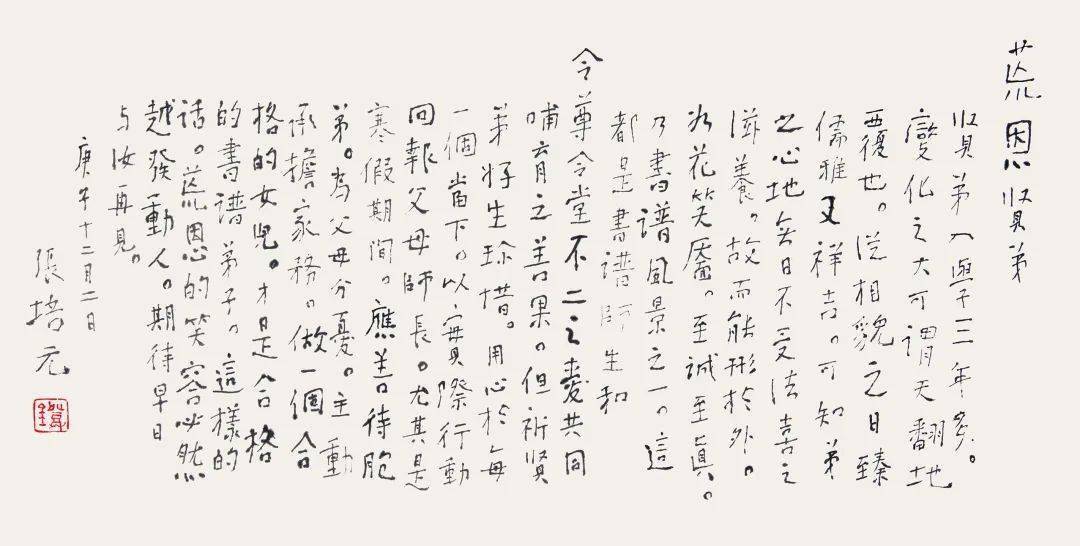 荒恩贤弟
贤弟入學三年多。
變化之大可謂天翻地
覆也。從相貌之日臻
儒雅又祥吉。可知弟
之心地無日不受法喜之
滋養。故而能形於外。
如花笑靨。至誠至真。
乃書譜風景之一。這
都是書谱師生和
令尊令堂不二之愛共同
哺育之善果。但祈贤
弟好生珍惜。用心於每
一個當下。以實際行動
回報父母師長。尤其是
寒假期間。應善待胞
弟。為父母分憂。主動
承擔家務。做一個合
格的女兒。才是合格
的書谱弟子。這樣的
話。荒恩的笑容必然
越發動人。期待早日
与汝再見。
庚子十二月二日
張培元